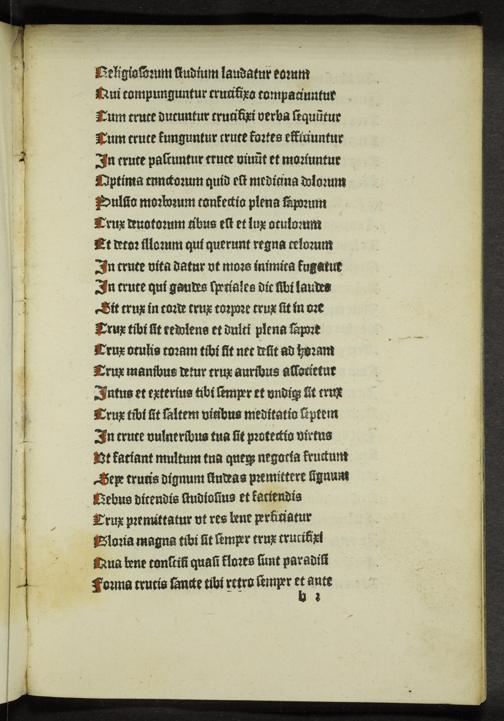 Religiosorum studium laudatur eorum
Qui compunguntur crucifixo compaciuntur
Cum cruce ducuntur crucifixi verba sequūtur
Cum cruce funguntur cruce fortes efficiuntur
In cruce pascuntur cruce viuūt et moriuntur
Optima cunctorum quid est medicina dolorum
Pulsio morborum confectio plena saporum
Crux deuotorum cibus est et lux oculorum
Et decor illorum qui querunt regna celorum
In cruce vita datur vt mors inimica fugatur
In cruce qui gaudes speciales dic sibi laudes
Sit crux in corde crux corpore crux sit in ore
Crux tibi sit redolens et dulci plena sapore
Crux oculis coram tibi sit nec desit ad horam
Crux manibus detur crux auribus associetur
Intus et exterius tibi semper et vndiqꝫ sit crux
Crux tibi sit saltem visibus meditatio septem
In cruce vulneribus tua sit protectio virtus
Vt faciant multum tua queqꝫ negocia fructum
Sepe crucis dignum studeas premittere signum
Rebus dicendis studiosius et faciendis
Crux premittatur vt res bene perficiatur
Gloria magna tibi sit semper crux crucifixi
Qua bene conscisi quasi flores sunt paradisi
Forma crucis sancte tibi retro semper et ante
b 1